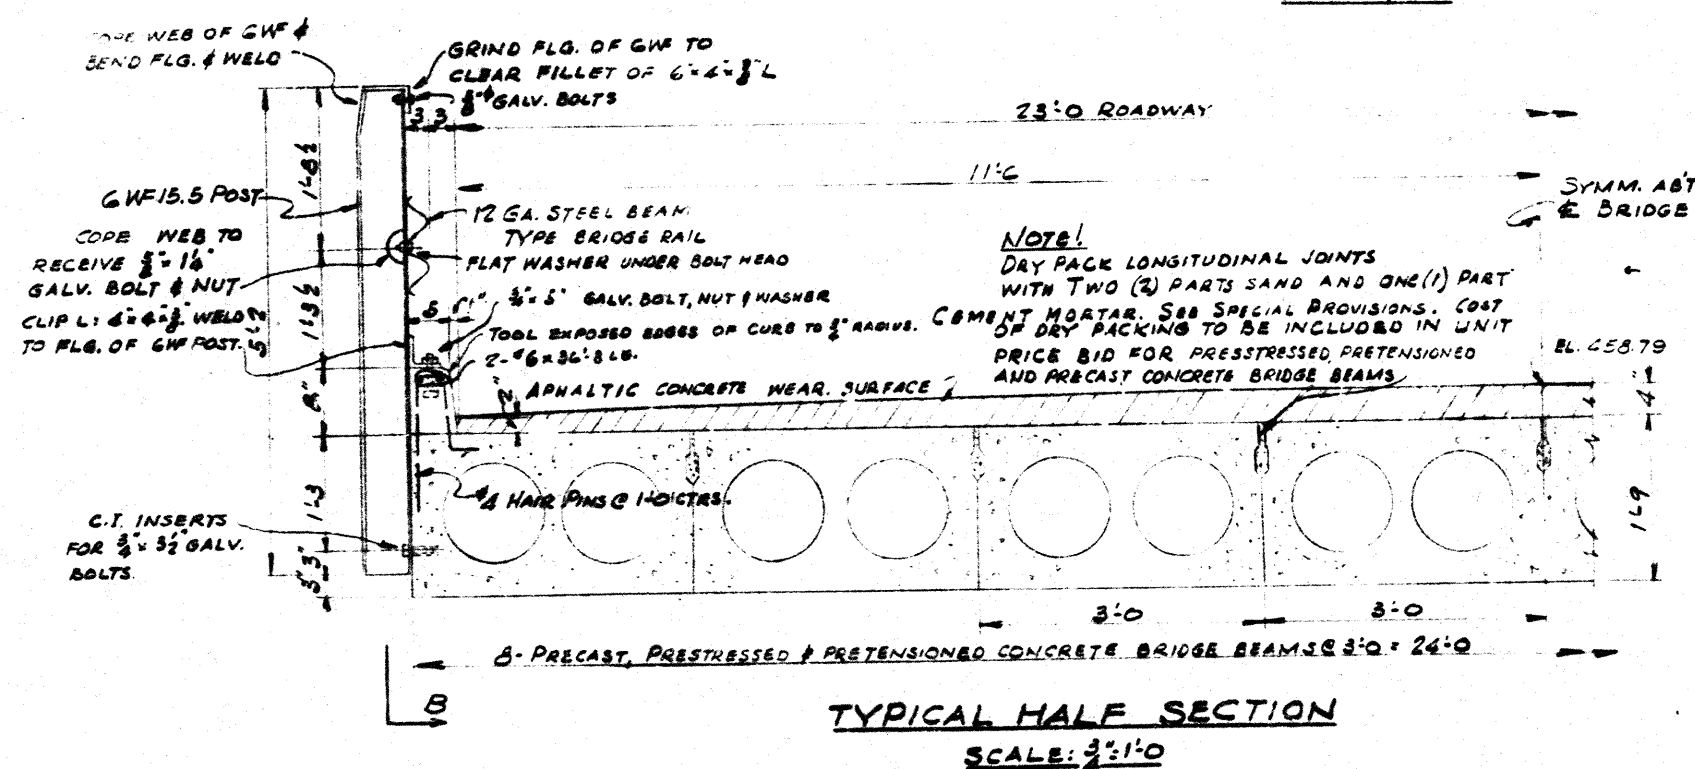 WEB OF 6WF &
BEND FLG. & WELD
GRIND FLG. OF 6WF TO
CLEAR FILLET OF 6"x4"x⅜" L
⅝"ϕ GALV. BOLTS
3 3
23'-0 ROADWAY
11'-6
SYMM. AB'T
℄ BRIDGE
6WF15.5 POST
1'-8½
12 GA. STEEL BEAM
TYPE BRIDGE RAIL
FLAT WASHER UNDER BOLT HEAD
COPE WEB TO
RECEIVE ⅝"x 1¼"
GALV. BOLT & NUT
CLIP L: WELD
TO FLG. OF 6WF POST.
1'-3½
¾"x 5" GALV. BOLT, NUT & WASHER
TOOL EXPOSED EDGES OF CURB TO RADIUS.
2-#6x36'-8 LG.
NOTE!
DRY PACK LONGITUDINAL JOINTS
WITH TWO (2) PARTS SAND AND ONE (1) PART
CEMENT MORTAR. SEE SPECIAL PROVISIONS. COST
OF DRY PACKING TO BE INCLUDED IN UNIT
PRICE BID FOR PRESSTRESSED, PRETENSIONED
AND PRECAST CONCRETE BRIDGE BEAMS
EL. 458.79
4"
2"
APHALTIC CONCRETE WEAR. SURFACE
8"
#4 HAIR PINS @ 1'-0 CTRS.
1'-3
1'-9
C.I. INSERTS
FOR ¾"x 3½" GALV.
BOLTS.
3" 3"
3'-0
3'-0
8- PRECAST, PRESTRESSED & PRETENSIONED CONCRETE BRIDGE BEAMS @ 3'-0 = 24'-0
B
TYPICAL HALF SECTION
SCALE: ¾"=1'-0